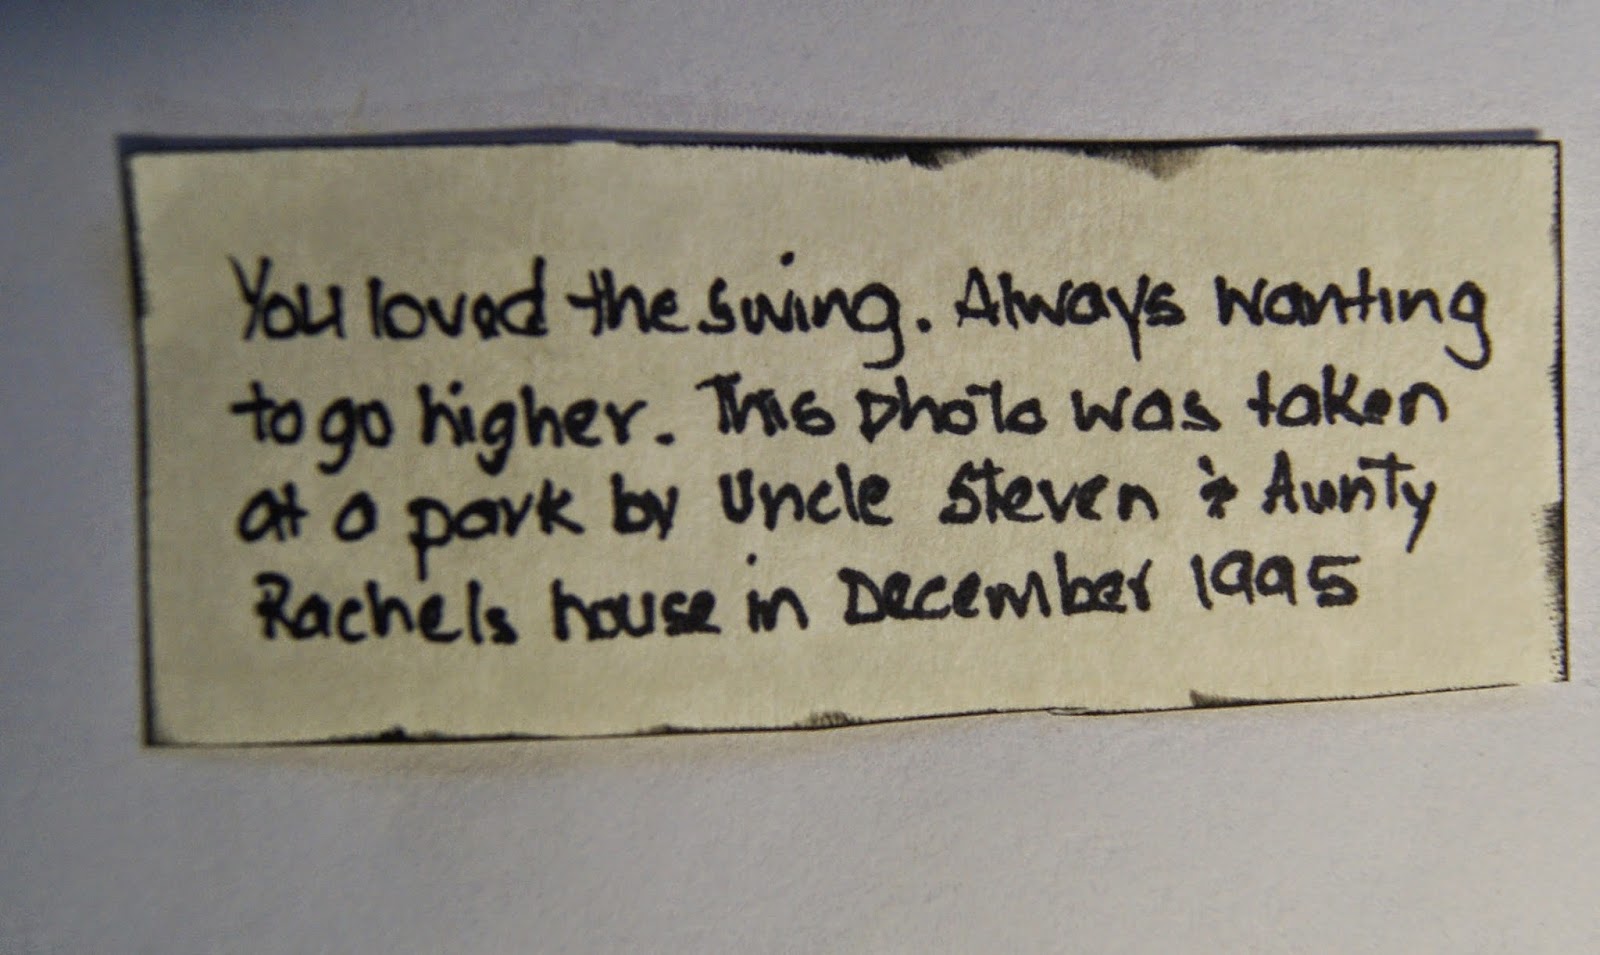 You loved the swing. Always wanting
to go higher. This photo was taken
at a park by Uncle Steven & Aunty
Rachels house in December 1995